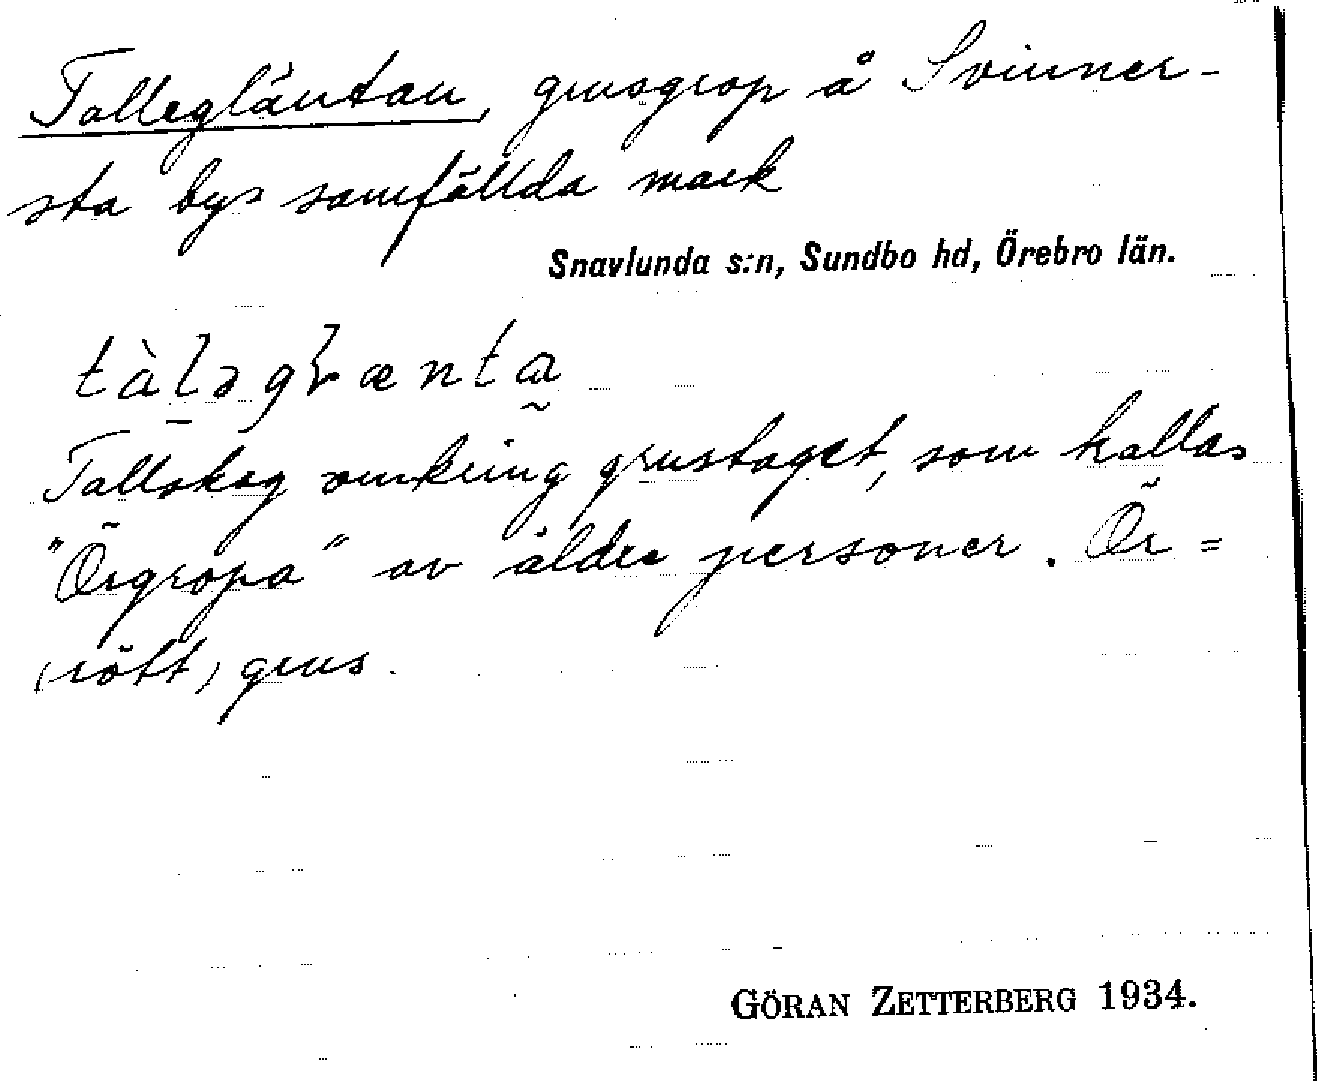 Tallegläntan, grusgrop å Svinner-
sta bys samfällda mark
Snavlunda s:n, Sundbo hd, Örebro län.
Tallskog omkring grustaget, som kallas
"Örgropa" av äldre personer. Ör =
(rött) grus.
GÖRAN ZETTERBERG 1934.